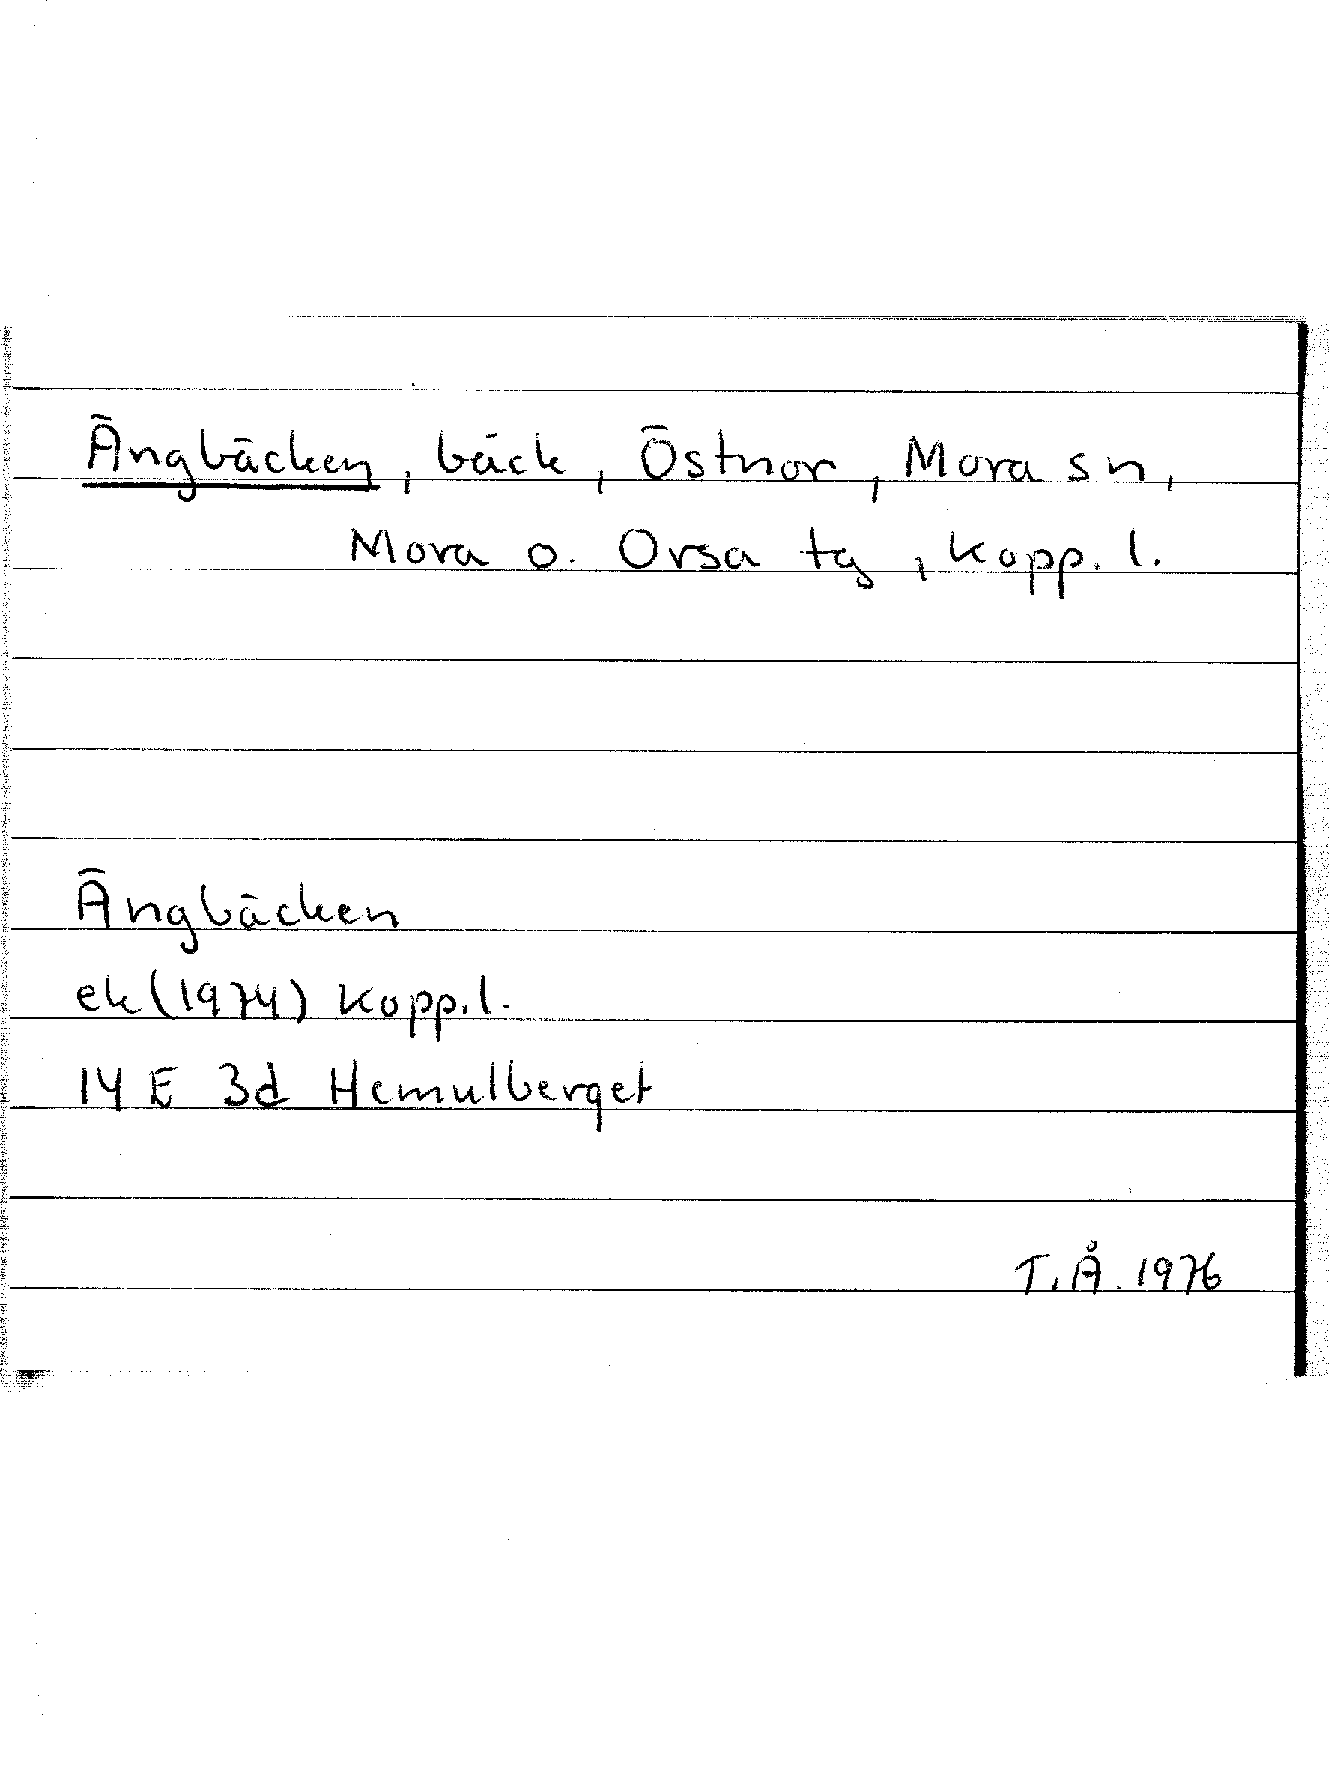 Ängbäcken, bäck, Östnor, Mora sn,
Mora o. Orsa tg, Kopp. l.
Ängbäcken
ek (1974) Kopp. l.
14 E 3d Hemulberget
T. Å. 1976